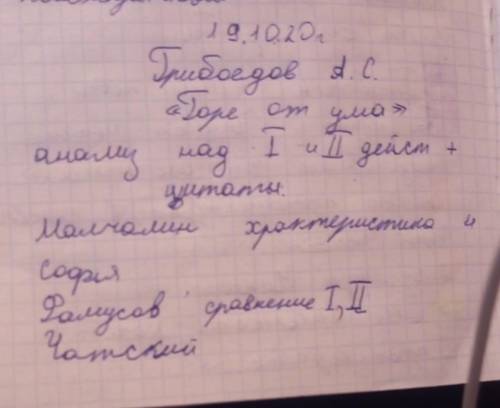 19.10.20г
Грибоедов А. С.
«Горе от ума»
анализ над I и II дейст +
цитаты.
Малчалин храктеристика и
София
Фамусов сравнение I, II
Чатский